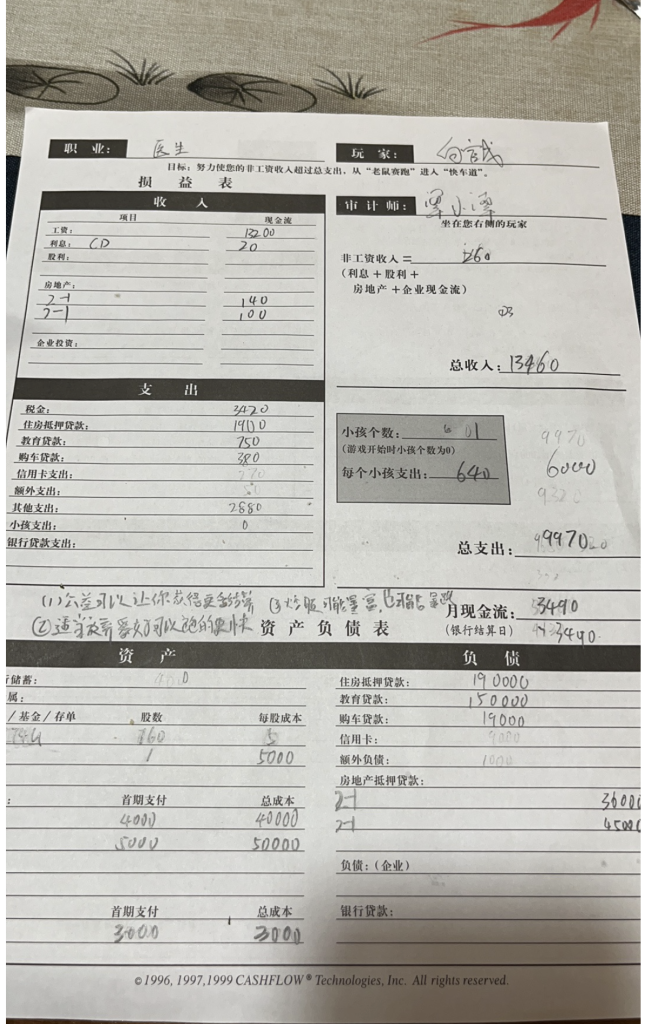 职 业： 医生
玩 家：
目标：努力使您的非工资收入超过总支出，从“老鼠赛跑”进入“快车道”。
损 益 表
收 入
项目 现金流
工资： 13200
利息： CD 20
股利：
房地产：
2-1 140
2-1 100
企业投资：
审 计 师：
坐在您右侧的玩家
非工资收入＝ 260
（利息＋股利＋
房地产＋企业现金流）
总收入：13460
支 出
税金： 3420
住房抵押贷款： 1900
教育贷款： 750
购车贷款： 380
信用卡支出： 270
额外支出： 50
其他支出： 2880
小孩支出： 0
银行贷款支出：
小孩个数： 01
（游戏开始时小孩个数为0）
每个小孩支出： 640
9970
6000
932
总支出： 9970
(1)公益可以让你获得更多
(2)适当放弃 可以跑的更快
(3)炒股可能暴富，也可能
月现金流： 3490
（银行结算日） 3490
资 产 负 债 表
资 产
储蓄：
属：
/基金/存单 股数 每股成本
160 5
1 5000
： 首期支付 总成本
4000 40000
5000 50000
首期支付 总成本
3000 3000
负 债
住房抵押贷款： 190000
教育贷款： 150000
购车贷款： 19000
信用卡： 9000
额外负债： 1000
房地产抵押贷款：
2-1 36000
2-1 45000
负债：（企业）
银行贷款：
©1996, 1997,1999 CASHFLOW® Technologies, Inc. All rights reserved.